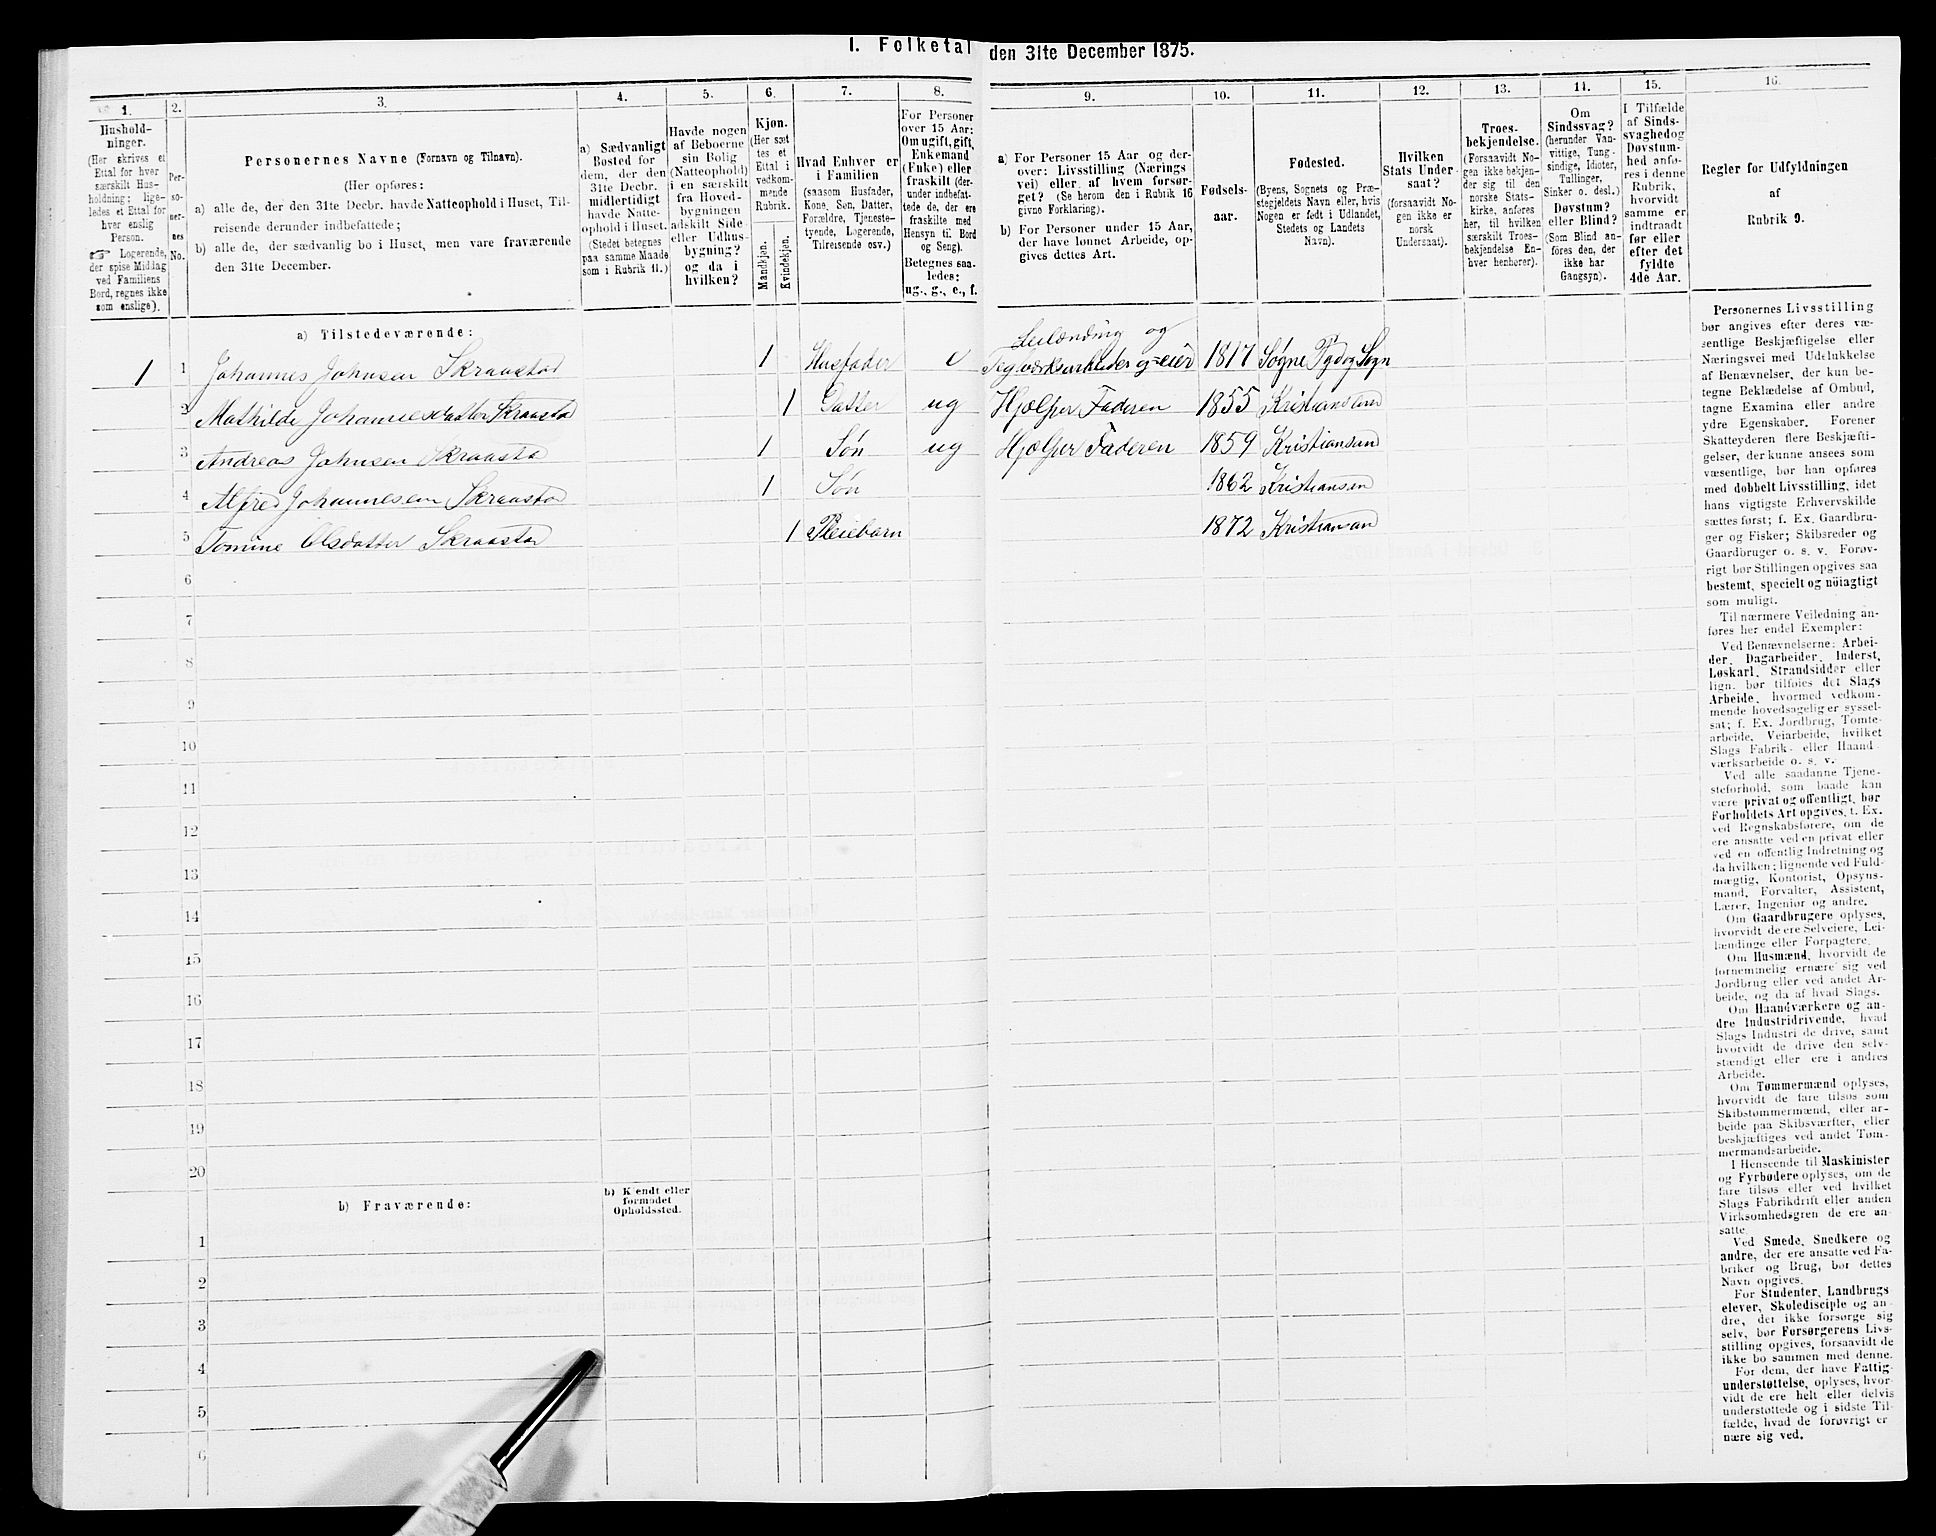 I. Folketal den 31te December 1875.
1.
Hushold-
ninger.
(Her skrives et
Ettal for hver
særskilt Hus-
holdning; lige-
ledes et Ettal for
hver enslig
Person.
☞ Logerende,
der spise Middag
ved Familiens
Bord, regnes ikke
som enslige).
2.
Per-
so-
ner-
nes
No.
3.
Personernes Navne (Fornavn og Tilnavn).
(Her opføres:
a) alle de, der den 31te Decbr. havde Natteophold i Huset, Til-
reisende derunder indbefattede;
b) alle de, der sædvanlig bo i Huset, men vare fraværende
den 31te December.
4.
a) Sædvanligt
Bosted for
dem, der den
31te Decbr.
midlertidigt
havde Natte-
ophold i Huset.
(Stedet betegnes
paa samme Maade
som i Rubrik 11.)
5.
Havde nogen
af Beboerne
sin Bolig
(Natteophold)
i en særskilt
fra Hoved-
bygningen
adskilt Side-
eller Udhus-
bygning?
og da i
hvilken?
6.
Kjøn.
(Her sæt
tes et
Ettal i
vedkom-
mende
Rubrik.
Mandkjøn.
Kvindekjøn.
7.
Hvad Enhver er
i Familien
(saasom Husfader,
Kone, Søn, Datter,
Forældre, Tjeneste-
tyende, Logerende,
Tilreisende osv.)
8.
For Personer
over 15 Aar:
Om ugift, gift,
Enkemand
(Enke) eller
fraskilt (der-
under indbefat-
tede de, der ere
fraskilte med
Hensyn til Bord
og Seng).
Betegnes saa-
ledes:
ug., g., e., f.
9.
a) For Personer 15 Aar og der-
over: Livsstilling (Nærings
vei) eller af hvem forsør-
get? (Se herom den i Rubrik 16
givne Forklaring).
b) For Personer under 15 Aar,
der have lønnet Arbeide, op-
gives dettes Art.
10.
Fødsels-
aar.
11.
Fødested.
(Byens, Sognets og Præ-
stegjeldets Navn eller, hvis
Nogen er født i Udlandet,
Stedets og Landets
Navn).
12.
Hvilken
Stats Under-
saat?
(forsaavidt No-
gen ikke er
norsk
Undersaat).
13.
Troes-
bekjendelse.
(Forsaavidt No-
gen ikke bekjen-
der sig til den
norske Stats-
kirke, anføres
her, til hvilken
særskilt Troes-
bekjendelse En-
hver henhører).
14.
Om
Sindssvag?
(herunder Van-
vittige, Tung-
sindige, Idioter,
Tullinger,
Sinker o. desl.)
Døvstum?
eller Blind?
(Som Blind an-
føres den, der
ikke har
Gangsyn).
15.
I Tilfælde
af Sinds-
svaghed og
Døvstum-
hed anfø-
res i denne
Rubrik,
hvorvidt
samme er
indtraadt
før eller
efter det
fyldte
4de Aar.
16.
Regler for Udfyldningen
af
Rubrik 9.
a) Tilstedeværende:
Leilænding og
1 1 Johannes Johnsen Skraastad 1 Husfader e Teglværksarbeider og=eier 1817 Søgne Pgd og Sogn
2 Mathilde Johannesdatter Skraastad 1 Datter ug Hjælper Faderen 1855 Kristiansand
3 Andreas Johnsen Skraastad 1 Søn ug Hjælper Faderen 1859 Kristiansand
4 Alfred Johannesen Skraastad 1 Søn 1862 Kristiansand
5 Tomine Olsdatter Skraastad 1 Pleiebarn 1872 Kristiansand
6
7
8
9
10
11
12
13
14
15
16
17
18
19
20
b) Fraværende:
b) Kjendt eller
formodet
Opholdssted.
1
2
3
4
5
6
Personernes Livsstilling
bør angives efter deres væ-
sentlige Beskjæftigelse eller
Næringsvei med Udelukkelse
af Benævnelser, der kun be-
tegne Beklædelse af Ombud,
tagne Examina eller andre
ydre Egenskaber. Forener
Skatteyderen flere Beskjæfti-
gelser, der kunne ansees som
væsentlige, bør han opføres
med dobbelt Livsstilling, idet
hans vigtigste Erhvervskilde
sættes først; f. Ex. Gaardbru-
ger og Fisker; Skibsreder og
Gaardbruger o. s. v. Forøv-
rigt bør Stillingen opgives saa
bestemt, specielt og nöiagtigt
som muligt.
Til nærmere Veiledning an-
føres her endel Exempler:
Ved Benævnelserne: Arbei-
der, Dagarbeider, Inderst,
Løskarl, Strandsidder eller
lign. bør tilføies det Slags
Arbeide, hvormed vedkom-
mende hovedsagelig er syssel-
sat; f. Ex. Jordbrug, Tomte-
arbeide, Veiarbeide, hvilket
Slags Fabrik- eller Haand-
værksarbeide o. s. v.
Ved alle saadanne Tjene-
steforhold, som baade kan
være privat og offentligt, bør
Forholdets Art opgives, t. Ex.
ved Regnskabsførere, om de
ere ansatte ved en privat eller
ved en offentlig Indretning og
da hvilken; lignende ved Fuld-
mægtig, Kontorist, Opsyns-
mand, Forvalter, Assistent,
Lærer, Ingeniør og andre.
Om Gaardbrugere oplyses,
hvorvidt de ere Selveiere, Lei-
lændinge eller Forpagtere.
Om Husmænd, hvorvidt de
fornemmelig ernære sig ved
Jordbrug eller ved andet Ar-
beide, og da af hvad Slags.
Om Haandværkere og an-
dre Industridrivende, hvad
Slags Industri de drive, samt
hvorvidt de drive den selv-
stændigt eller ere i andres
Arbeide.
Om Tømmermænd oplyses,
hvorvidt de fare tilsøs som
Skibstømmermænd, eller ar-
beide paa Skibsværfter, eller
beskjæftiges ved andet Tøm-
mermandsarbeide.
I Henseende til Maskinister
og Fyrbødere oplyses, om de
fare tilsøs eller ved hvilket
Slags Fabrikdrift eller anden
Virksomhedsgren de ere an-
satte.
Ved Smede, Snedkere og
andre, der ere ansatte ved Fa-
briker og Brug, bør dettes
Navn opgives.
For Studenter, Landbrugs-
elever, Skoledisciple og an-
dre, der ikke forsørge sig
selv, bør Forsørgerens Livs-
stilling opgives, forsaavidt de
ikke bo sammen med denne.
For dem, der have Fattig-
understøttelse, oplyses, hvor-
vidt de ere helt eller delvis
understøttede og i sidste Til-
fælde, hvad de forøvrigt er
nære sig ved.